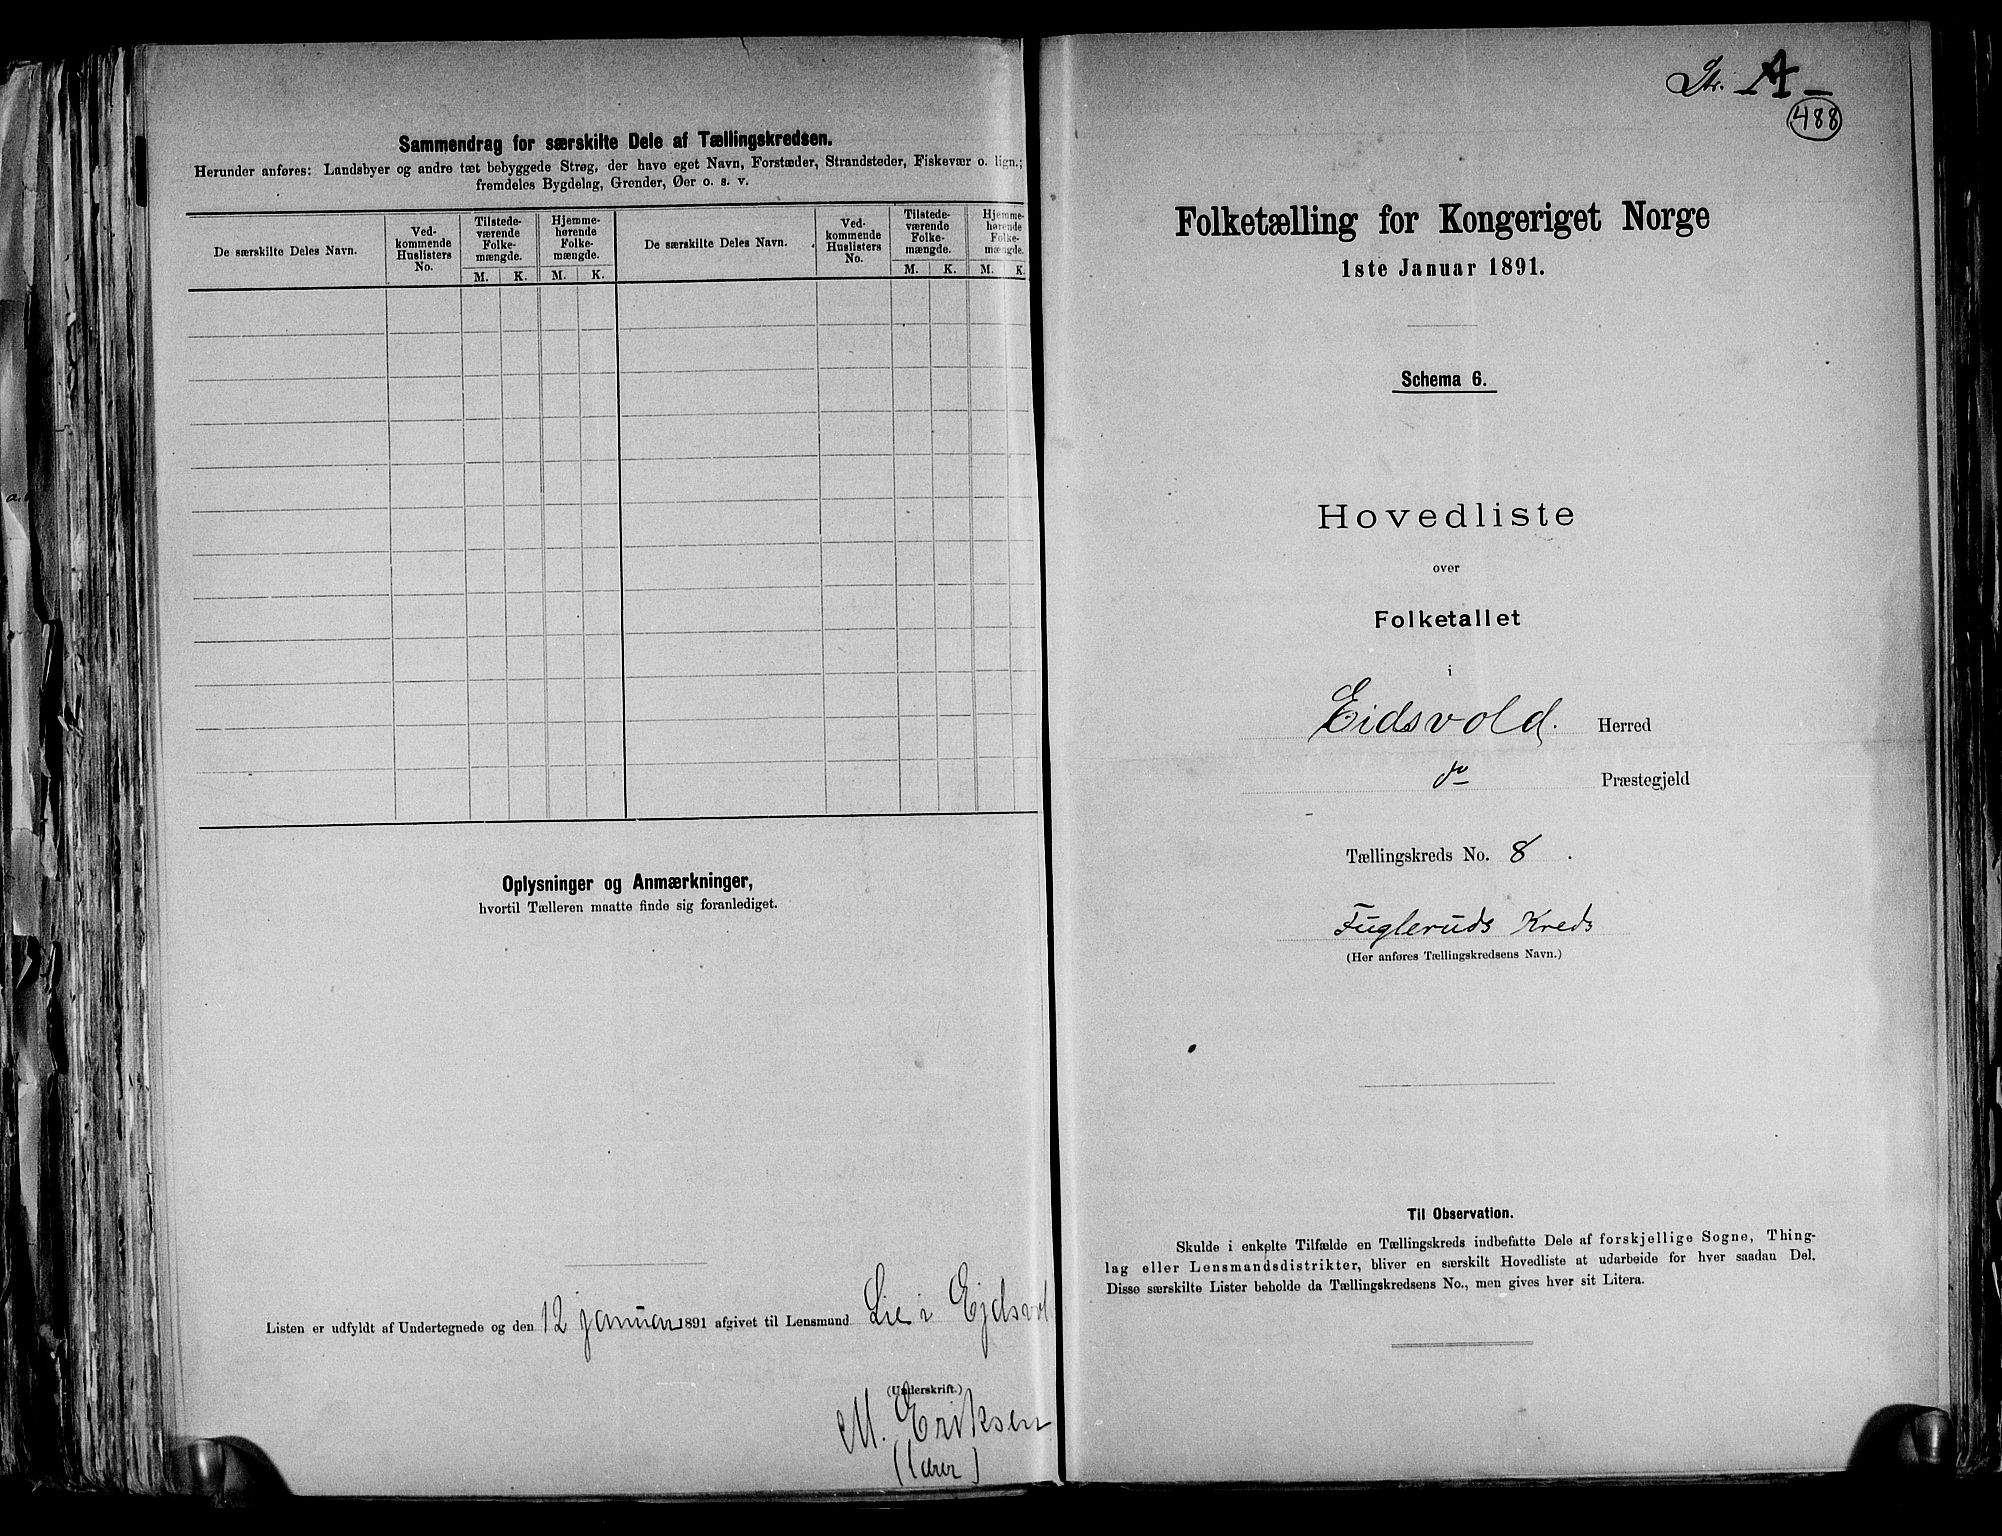 Sammendrag for særskilte Dele af Tællingskredsen.
Herunder anføres: Landsbyer og andre tæt bebyggede Strøg, der have eget Navn, Forstæder, Strandsteder, Fiskevær o. lign.;
fremdeles Bygdelag, Grender, Øer o. s. v.
De særskilte Deles Navn.
Ved-
kommende
Huslisters
No.
Tilstede-
værende
Folke-
mængde.
Hjemme-
hørende
Folke-
mængde.
M. K. M. K.
De særskilte Deles Navn.
Ved-
kommende
Huslisters
No.
Tilstede-
værende
Folke-
mængde.
Hjemme-
hørende
Folke-
mængde.
M. K. M. K.
Oplysninger og Anmærkninger,
hvortil Tælleren maatte finde sig foranlediget.
Listen er udfyldt af Undertegnede og den 12 januar 1891 afgivet til Lensmand Lie i Ejdsvol
(Underskrift.)
M. Eriksen
(lærer)
Litr. A
488
Folketælling for Kongeriget Norge
1ste Januar 1891.
Schema 6.
Hovedliste
over
Folketallet
i
Eidsvold. Herred
do Præstegjeld
Tællingskreds No. 8.
Fugleruds Kreds
(Her anføres Tællingskredsens Navn.)
Til Observation.
Skulde i enkelte Tilfælde en Tællingskreds indbefatte Dele af forskjellige Sogne, Thing-
lag eller Lensmandsdistrikter, bliver en særskilt Hovedliste at udarbeide for hver saadan Del.
Disse særskilte Lister beholde da Tællingskredsens No., men gives hver sit Litera.